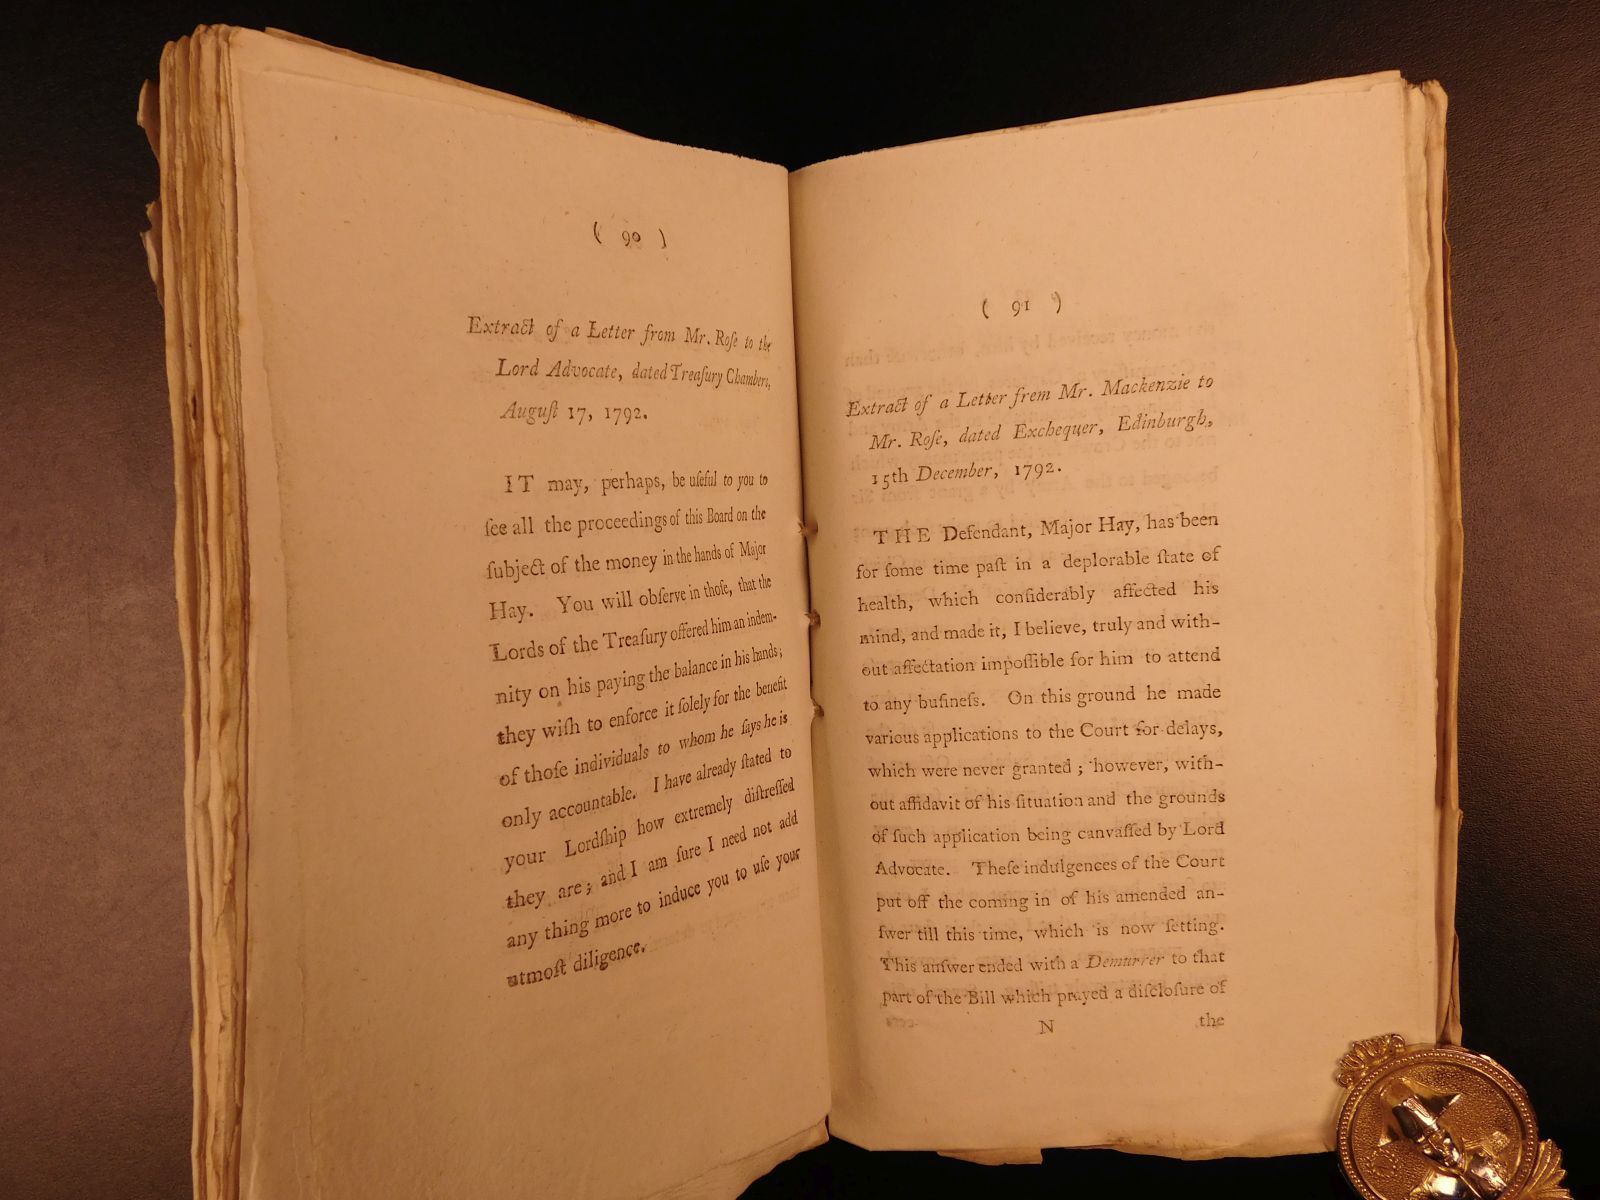 ( 90 )
Extract of a Letter from Mr. Roſe to the
Lord Advocate, dated Treaſury Chambers,
Auguſt 17, 1792.
IT may, perhaps, be uſeful to you to
ſee all the proceedings of this Board on the
ſubject of the money in the hands of Major
Hay. You will obſerve in thoſe, that the
Lords of the Treaſury offered him an indem-
nity on his paying the balance in his hands;
they wiſh to enforce it ſolely for the benefit
of thoſe individuals to whom he ſays he is
only accountable. I have already ſtated to
your Lordſhip how extremely diſtreſſed
they are; and I am ſure I need not add
any thing more to induce you to uſe your
utmoſt diligence.
( 91 )
Extract of a Letter frem Mr. Mackenzie to
Mr. Roſe, dated Exchequer, Edinburgh,
15th December, 1792.
THE Defendant, Major Hay, has been
for ſome time paſt in a deplorable ſtate of
health, which conſiderably affected his
mind, and made it, I believe, truly and with-
out affectation impoſſible for him to attend
to any buſineſs. On this ground he made
various applications to the Court for delays,
which were never granted; however, with-
out affidavit of his ſituation and the grounds
of ſuch application being canvaſſed by Lord
Advocate. Theſe indulgences of the Court
put off the coming in of his amended an-
ſwer till this time, which is now ſetting.
This anſwer ended with a Demurrer to that
part of the Bill which prayed a diſcloſure of
N the